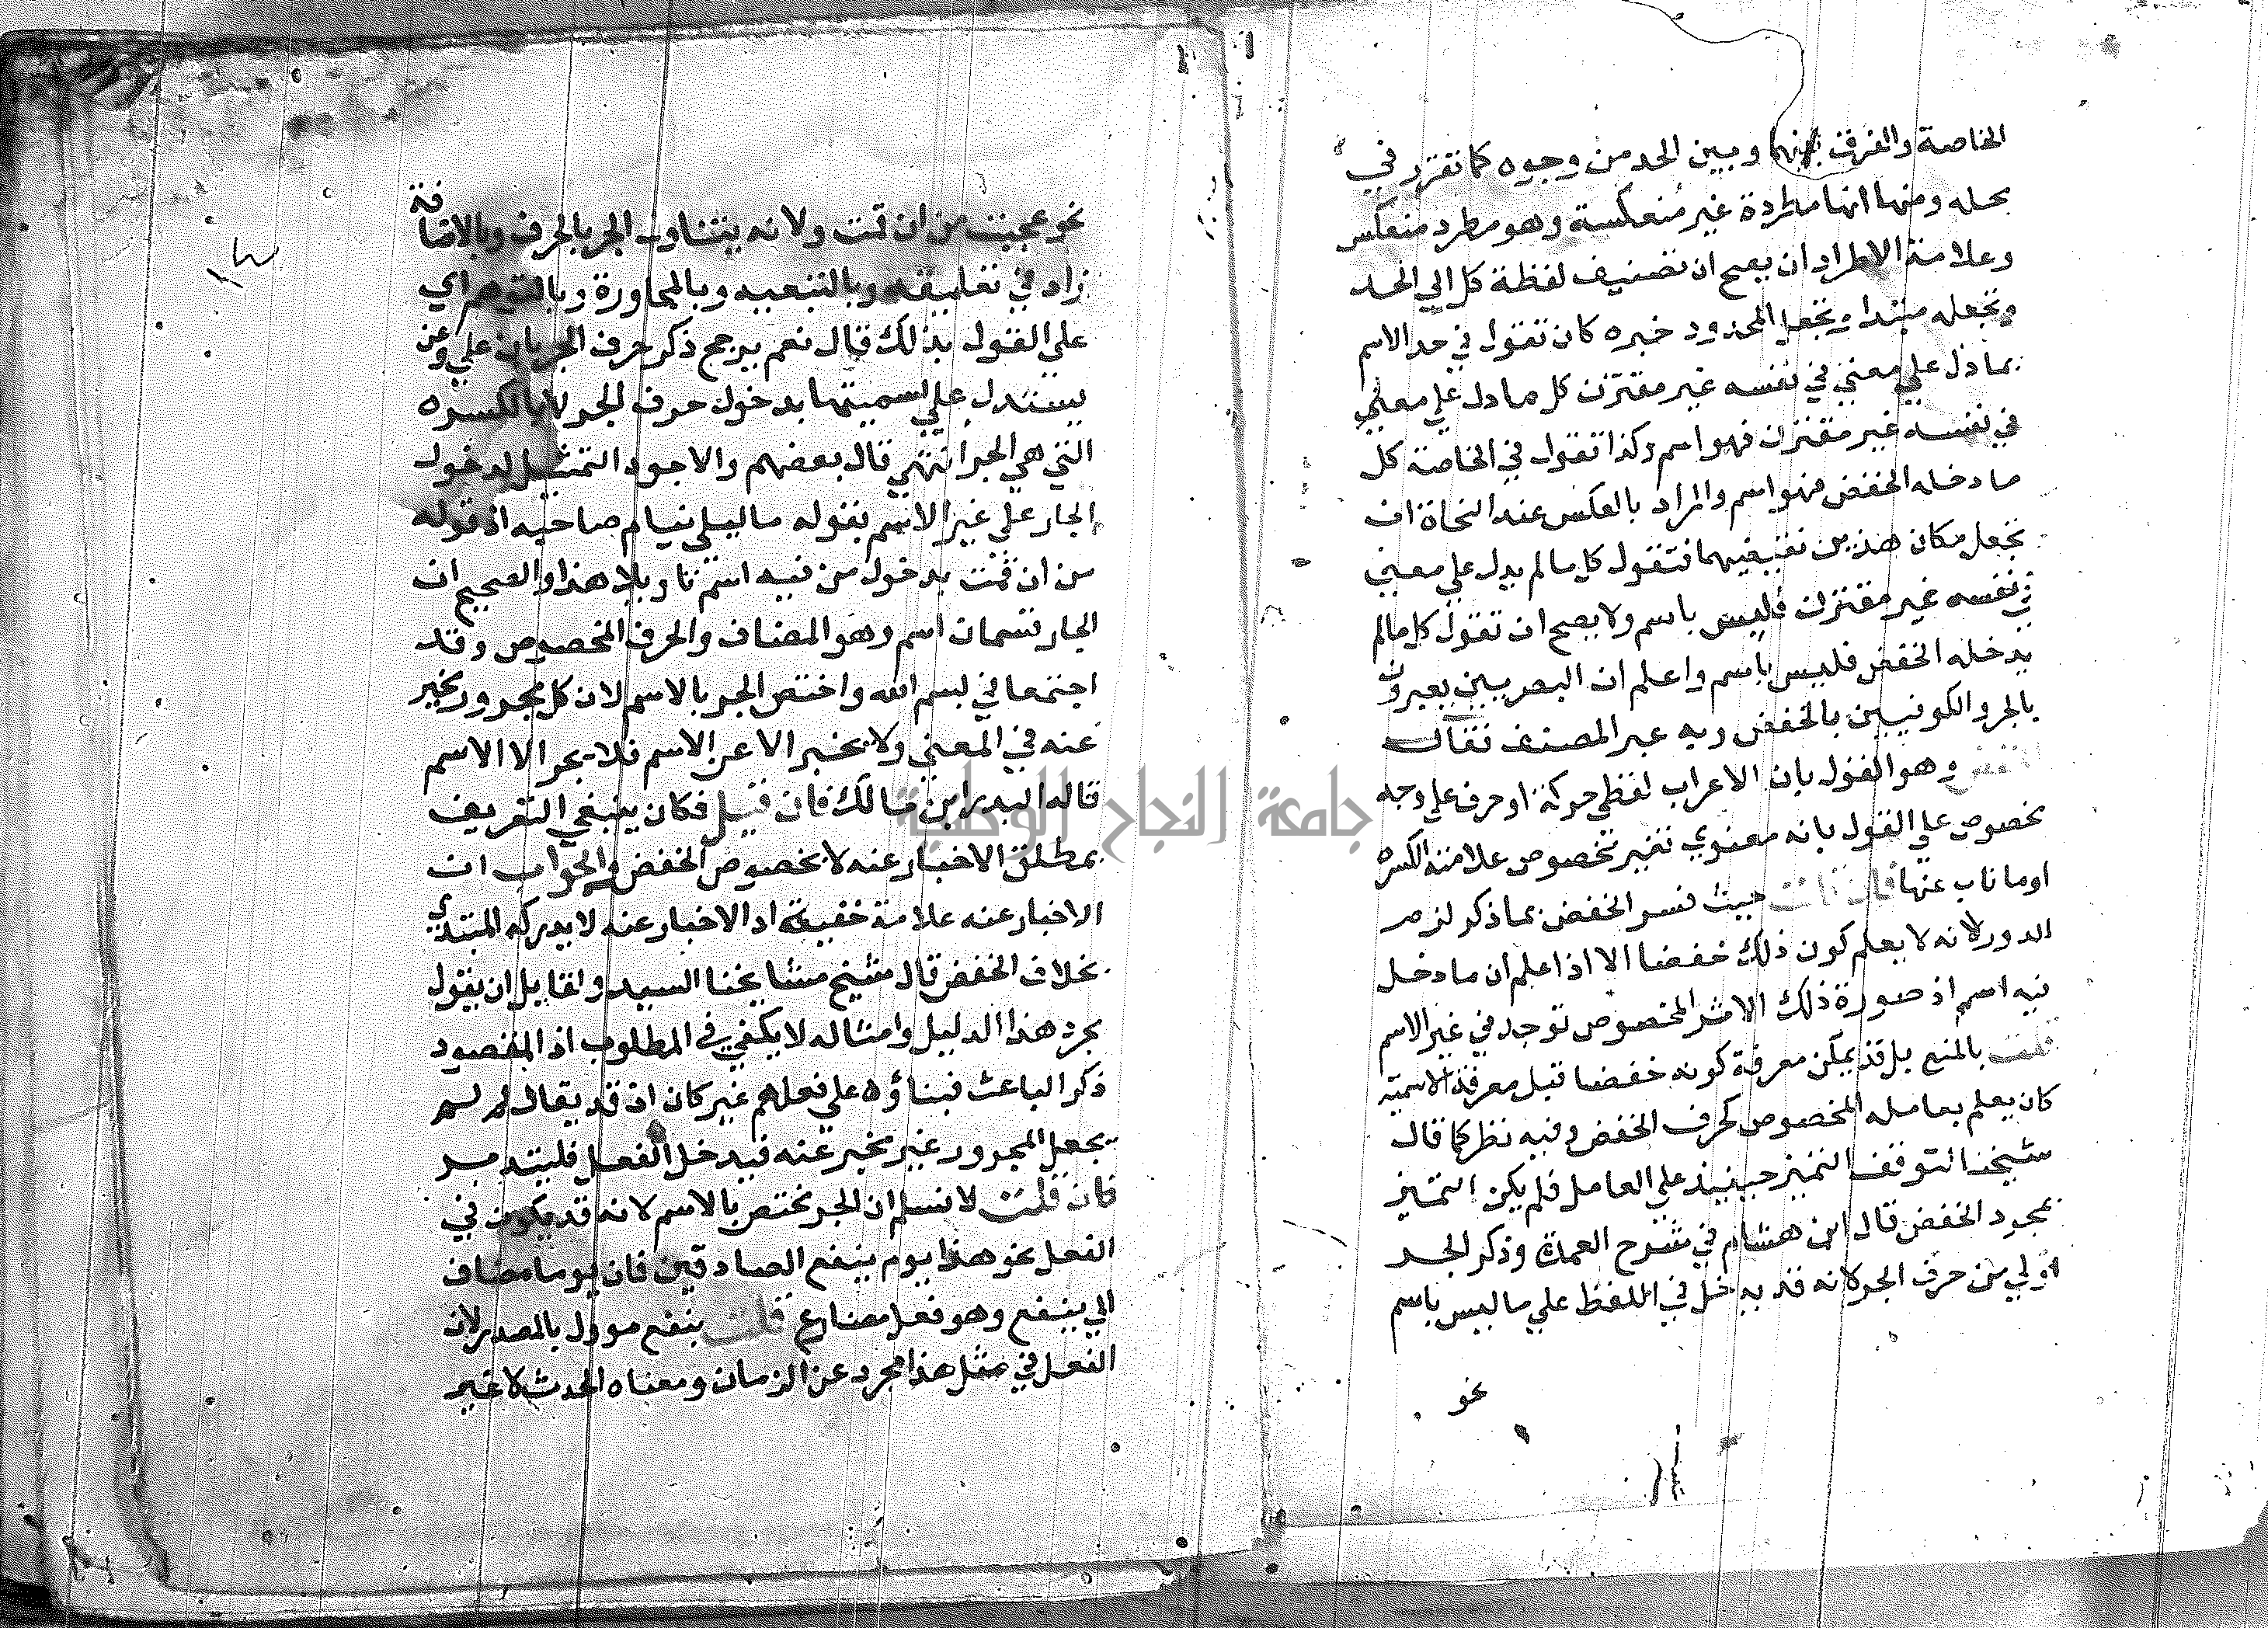 الخاصة والفرق بينها وبين الحد من وجوه كما تقرر في
محله ومنها انها مطردة غير منعكسة وهو مطرد منعكس
وعلامة الاطراد ان يصح ان تضيف لفظة كل الي الحد
وتجعله مبتدا وتجعل المحدود خبره كان تقول في حد الاسم
بما دل علي معني في نفسه غير مقترن كل ما دل علي معني
في نفسه غير مقترن فهو اسم وكذا تقول في الخاصة كل
ما دخله الخفض فهو اسم والمراد بالعكس عند النحاة ان
تجعل مكان هذين نقيضيهما فتقول كل ما لم يدل علي معني
في نفسه غير مقترن فليس باسم ولا يصح ان تقول كل ما لم
يدخله الخفض فليس باسم واعلم ان البصريين يعبرون
بالجر والكوفيين بالخفض وبه عبر المصنف فقال
الخفض وهو القول بان الاعراب لفظي حركة او حرف علي وجه
مخصوص علي القول بانه معنوي تغيير مخصوص علامته الكسرة
او ما ناب عنها فان قلت حيث فسر الخفض بما ذكر لزم
الدور لانه لا يعلم كون ذلك خفضا الا اذا علم ان ما دخل
فيه اسم اذ صورة ذلك الاثر المخصوص توجد في غير الاسم
قلت بالمنع بل قد يمكن معرفة كونه خفضا قبل معرفة الاسمية
كان يعلم بعامله المخصوص كحرف الخفض وفيه نظر كما قال
شيخنا لتوقف التمييز حينيذ علي العامل فلم يكن التمييز
بمجرد الخفض قال ابن هشام في شرح العمدة وذكر الجر
اولي من حرف الجر لانه قد يدخل في اللفظ علي ما ليس باسم
نحو
نحو عجبت من ان قمت ولانه يتناول الجر بالحرف وبالاضافة
زاد في تعليقه وبالتبعيه وبالمجاورة وبالتوهم اي
علي القول بذلك قال نعم يرجح ذكر حرف الجر بان علي وعن
يستدل علي اسميتها بدخول حرف الجر لا بالكسره
التي هي الجر انتهي قال بعضهم والاجود التمثيل لدخول
الجار علي غير الاسم بقوله ما ليلي بنيام صاحبه اذ قوله
من ان قمت بدخول من فيه اسم تاويلا هذا والصحيح ان
الجار قسمان اسم وهو المضاف والحرف المخصوص وقد
اجتمعا في بسم الله واختص الجر بالاسم لان كل مجرور مخبر
عنه في المعني ولا يخبر الا عن الاسم فلا يجر الا الاسم
قاله البدر ابن مالك فان قيل فكان ينبغي التعريف
بمطلق الاخبار عنه لا بخصوص الخفض والجواب ان
الاخبار عنه علامة خفية اذ الاخبار عنه لا يدركه المبتدي
بخلاف الخفض قال شيخ مشايخنا السيد ولقايل ان يقول
مجرد هذا الدليل وامثاله لا يكفي في المطلوب اذ المقصود
ذكر الباعث فبناؤه علي فعلهم غير كان اذ قد يقال لم لم
يجعل المجرور غير مخبر عنه فيدخل الفعل فليتدبر
فان قلت لا نسلم ان الجر مختص بالاسم لانه قد يكون في
الفعل نحو هذا يوم ينفع الصادقين فان يوما مضاف
الي ينفع وهو فعل مضارع قلت ينفع موول بالمصدر لان
الفعل في مثل هذا مجرد عن الزمان ومعناه الحدث لا غير
جامعة النجاح الوطنية